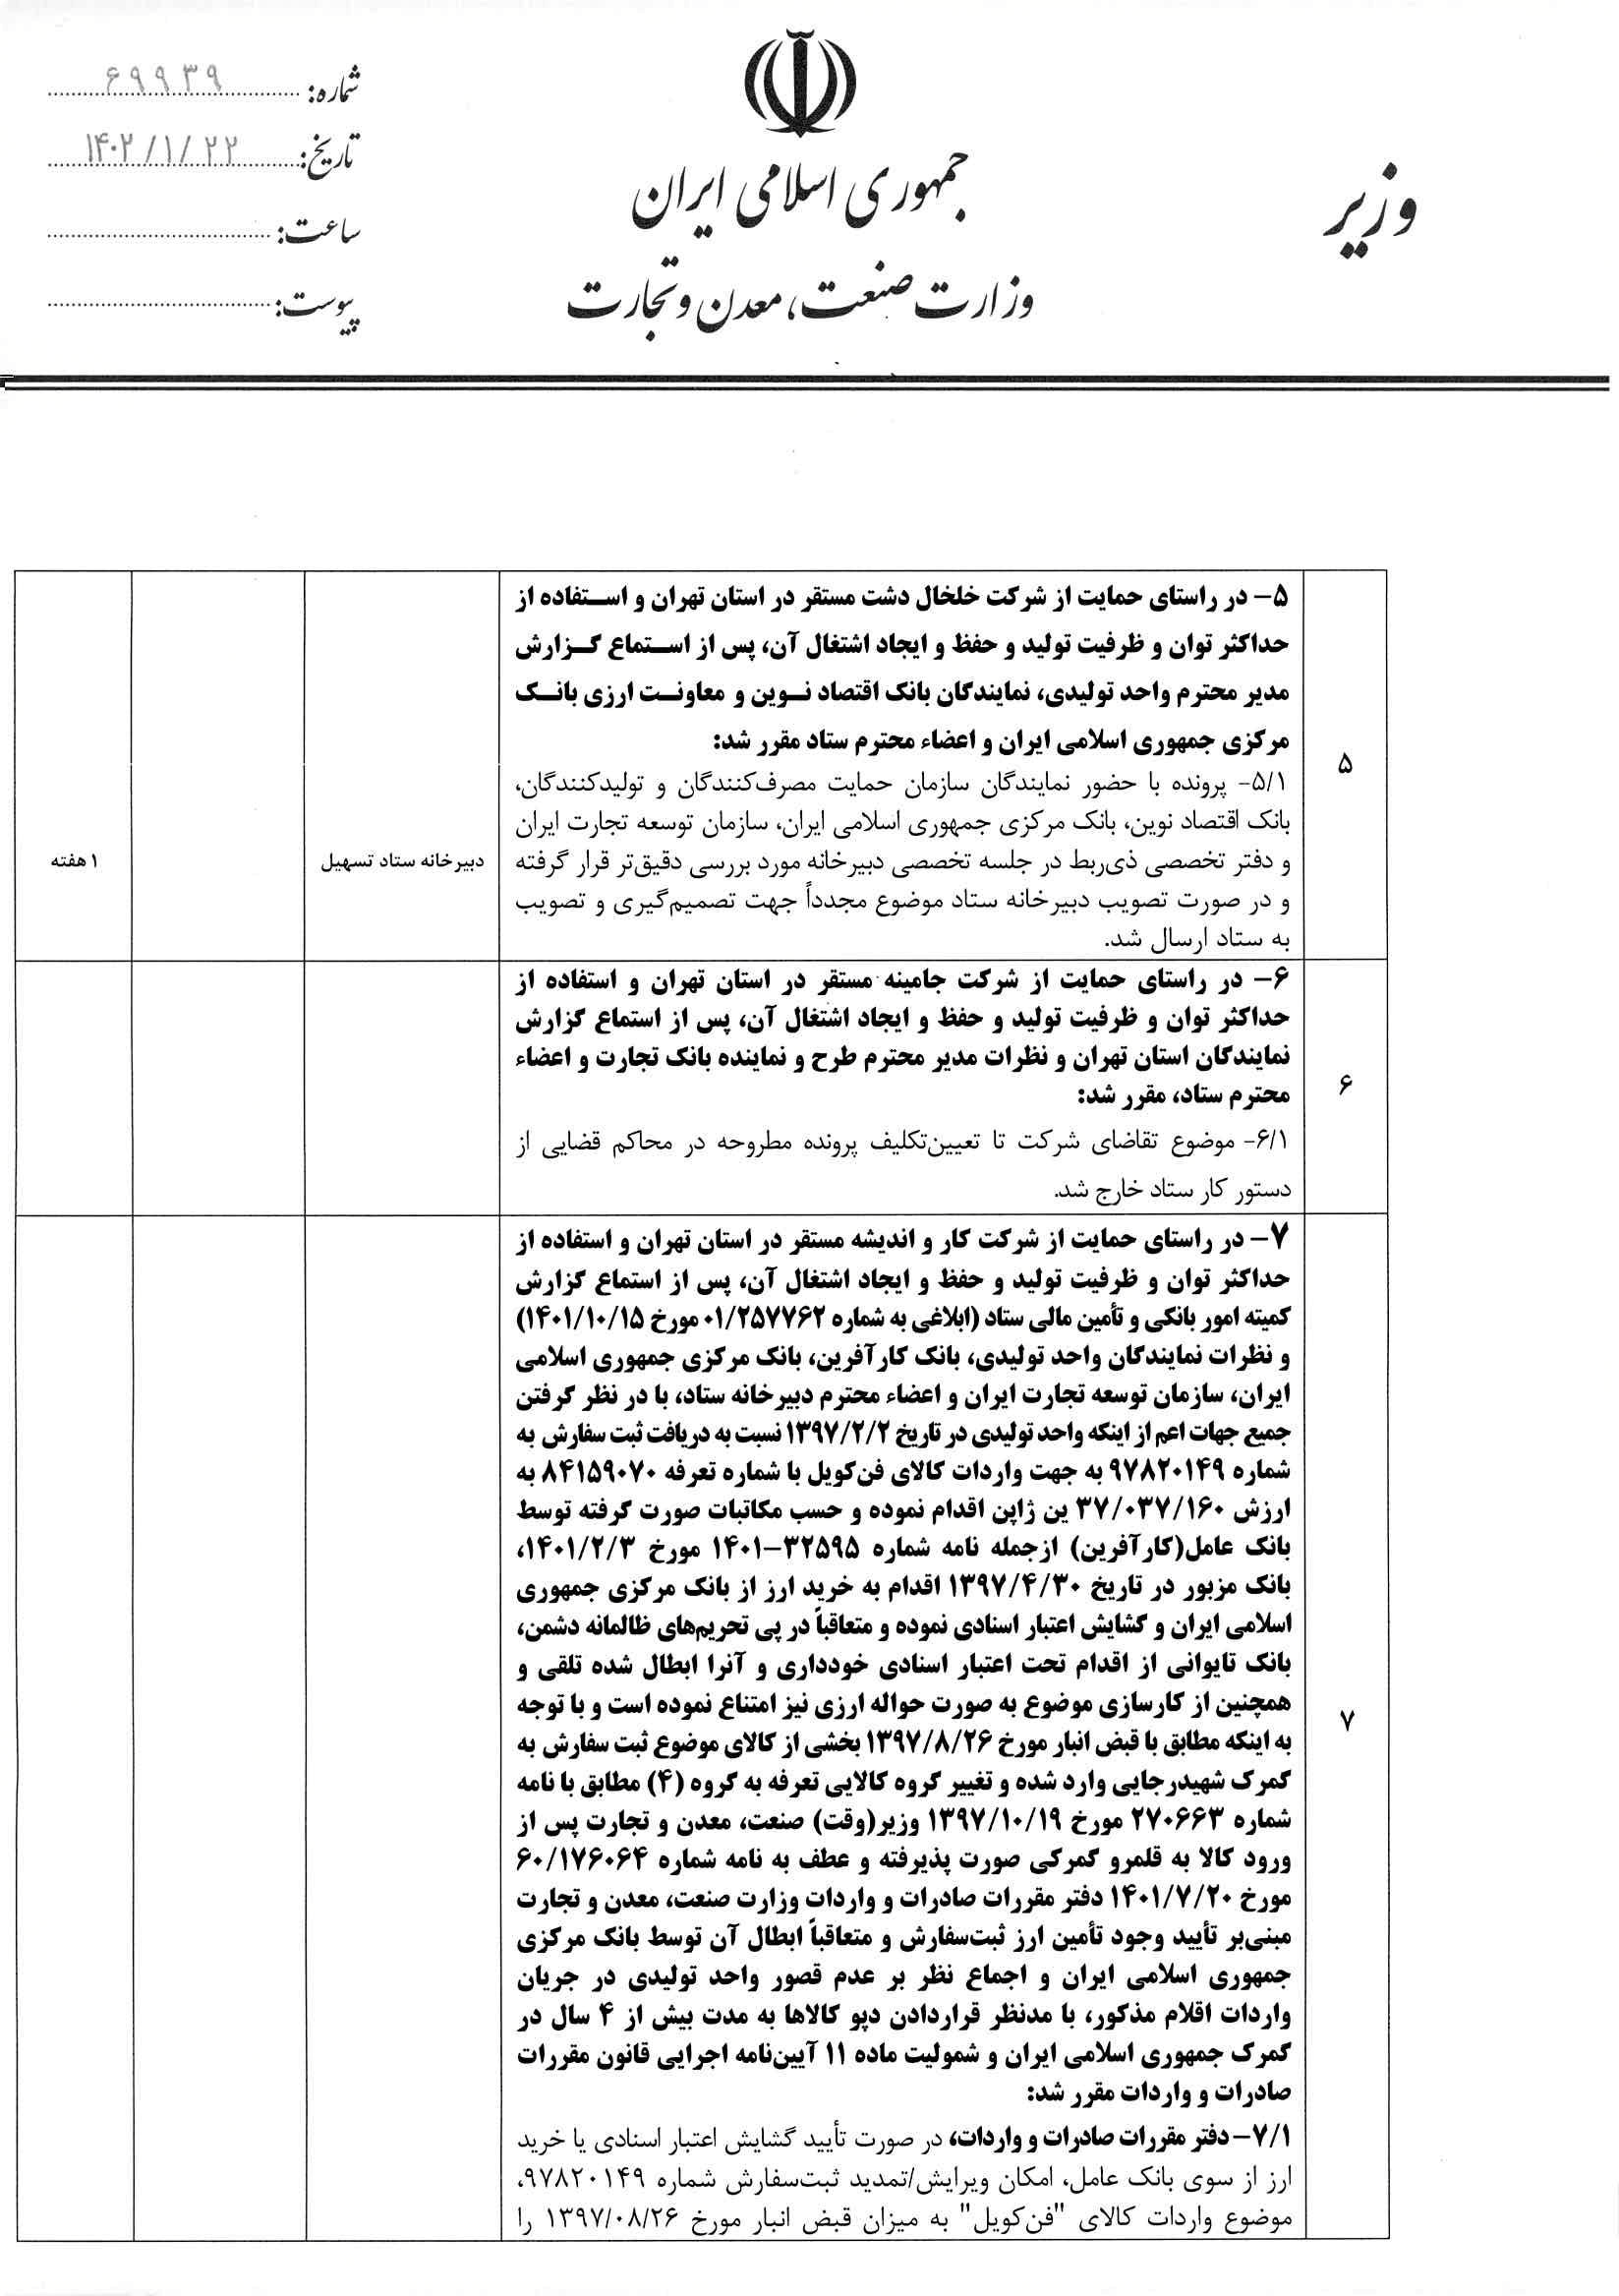 جمهوری اسلامی ایران
وزارت صنعت، معدن و تجارت
وزیر
شماره: ۶۹۹۳۹
تاریخ: ۱۴۰۲/۱/۲۲
ساعت:
پیوست:
۵
۵- در راستای حمایت از شرکت خلخال دشت مستقر در استان تهران و استفاده از
حداکثر توان و ظرفیت تولید و حفظ و ایجاد اشتغال آن، پس از استماع گزارش
مدیر محترم واحد تولیدی، نمایندگان بانک اقتصاد نوین و معاونت ارزی بانک
مرکزی جمهوری اسلامی ایران و اعضاء محترم ستاد مقرر شد:
۵/۱- پرونده با حضور نمایندگان سازمان حمایت مصرف‌کنندگان و تولیدکنندگان،
بانک اقتصاد نوین، بانک مرکزی جمهوری اسلامی ایران، سازمان توسعه تجارت ایران
و دفتر تخصصی ذی‌ربط در جلسه تخصصی دبیرخانه مورد بررسی دقیق‌تر قرار گرفته
و در صورت تصویب دبیرخانه ستاد موضوع مجدداً جهت تصمیم‌گیری و تصویب
به ستاد ارسال شد.
دبیرخانه ستاد تسهیل
۱ هفته
۶
۶- در راستای حمایت از شرکت جامینه مستقر در استان تهران و استفاده از
حداکثر توان و ظرفیت تولید و حفظ و ایجاد اشتغال آن، پس از استماع گزارش
نمایندگان استان تهران و نظرات مدیر محترم طرح و نماینده بانک تجارت و اعضاء
محترم ستاد، مقرر شد:
۶/۱- موضوع تقاضای شرکت تا تعیین‌تکلیف پرونده مطروحه در محاکم قضایی از
دستور کار ستاد خارج شد.
۷
۷- در راستای حمایت از شرکت کار و اندیشه مستقر در استان تهران و استفاده از
حداکثر توان و ظرفیت تولید و حفظ و ایجاد اشتغال آن، پس از استماع گزارش
کمیته امور بانکی و تأمین مالی ستاد (ابلاغی به شماره ۰۱/۲۵۷۷۶۲ مورخ ۱۴۰۱/۱۰/۱۵)
و نظرات نمایندگان واحد تولیدی، بانک کارآفرین، بانک مرکزی جمهوری اسلامی
ایران، سازمان توسعه تجارت ایران و اعضاء محترم دبیرخانه ستاد، با در نظر گرفتن
جمیع جهات اعم از اینکه واحد تولیدی در تاریخ ۱۳۹۷/۲/۲ نسبت به دریافت ثبت سفارش به
شماره ۹۷۸۲۰۱۴۹ به جهت واردات کالای فن‌کویل با شماره تعرفه ۸۴۱۵۹۰۷۰ به
ارزش ۳۷/۰۳۷/۱۶۰ ین ژاپن اقدام نموده و حسب مکاتبات صورت گرفته توسط
بانک عامل(کارآفرین) ازجمله نامه شماره ۳۲۵۹۵-۱۴۰۱ مورخ ۱۴۰۱/۲/۳،
بانک مزبور در تاریخ ۱۳۹۷/۴/۳۰ اقدام به خرید ارز از بانک مرکزی جمهوری
اسلامی ایران و گشایش اعتبار اسنادی نموده و متعاقباً در پی تحریم‌های ظالمانه دشمن،
بانک تایوانی از اقدام تحت اعتبار اسنادی خودداری و آنرا ابطال شده تلقی و
همچنین از کارسازی موضوع به صورت حواله ارزی نیز امتناع نموده است و با توجه
به اینکه مطابق با قبض انبار مورخ ۱۳۹۷/۸/۲۶ بخشی از کالای موضوع ثبت سفارش به
گمرک شهیدرجایی وارد شده و تغییر گروه کالایی تعرفه به گروه (۴) مطابق با نامه
شماره ۲۷۰۶۶۳ مورخ ۱۳۹۷/۱۰/۱۹ وزیر(وقت) صنعت، معدن و تجارت پس از
ورود کالا به قلمرو گمرکی صورت پذیرفته و عطف به نامه شماره ۶۰/۱۷۶۰۶۴
مورخ ۱۴۰۱/۷/۲۰ دفتر مقررات صادرات و واردات وزارت صنعت، معدن و تجارت
مبنی‌بر تأیید وجود تأمین ارز ثبت‌سفارش و متعاقباً ابطال آن توسط بانک مرکزی
جمهوری اسلامی ایران و اجماع نظر بر عدم قصور واحد تولیدی در جریان
واردات اقلام مذکور، با مدنظر قراردادن دپو کالاها به مدت بیش از ۴ سال در
گمرک جمهوری اسلامی ایران و شمولیت ماده ۱۱ آیین‌نامه اجرایی قانون مقررات
صادرات و واردات مقرر شد:
۷/۱- دفتر مقررات صادرات و واردات، در صورت تأیید گشایش اعتبار اسنادی یا خرید
ارز از سوی بانک عامل، امکان ویرایش/تمدید ثبت‌سفارش شماره ۹۷۸۲۰۱۴۹،
موضوع واردات کالای "فن‌کویل" به میزان قبض انبار مورخ ۱۳۹۷/۰۸/۲۶ را